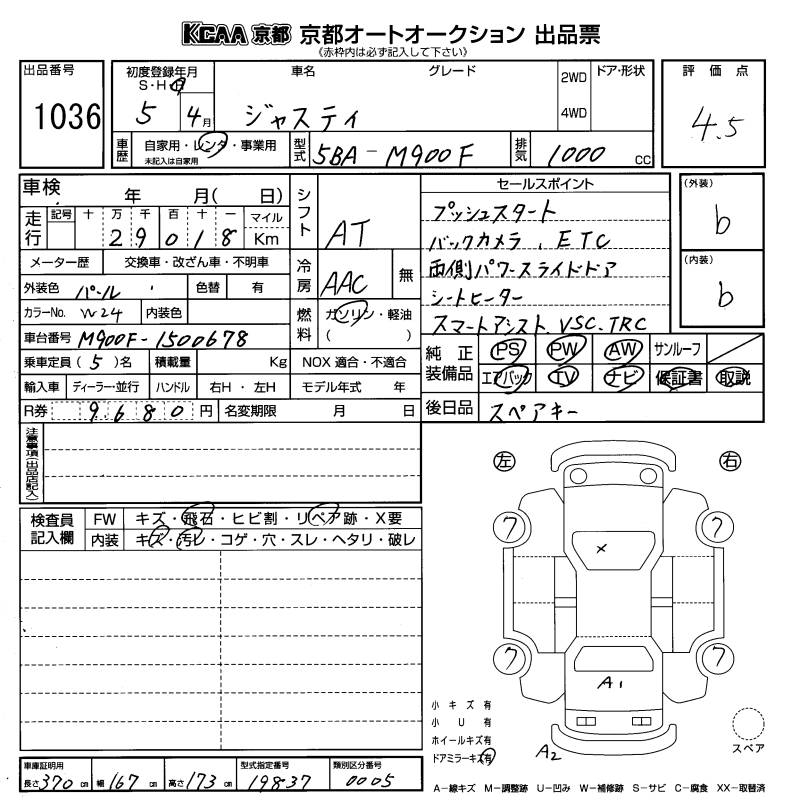 KCAA 京都 京都オートオークション 出品票
《赤枠内は必ず記入して下さい》
出品番号 1036
初度登録年月 S・H・R 5 4月
車名 ジャスティ
グレード
2WD
4WD
ドア・形状
評価点 4.5
車歴 自家用・レンタ・事業用
未記入は自家用
型式 5BA-M900F
排気 1000 CC
車検 年 月( 日)
シフト AT
セールスポイント
プッシュスタート
バックカメラ、ETC
両側パワースライドドア
シートヒーター
スマートアシスト、VSC、TRC
(外装) b
(内装) b
走行 記号 十 万 千 百 十 一 マイル
29018 Km
メーター歴 交換車・改ざん車・不明車
冷房 AAC 無
外装色 パール 色替 有
カラーNo. W24 内装色
燃料 ガソリン・軽油
( )
車台番号 M900F-1500678
乗車定員(5)名 積載量 Kg NOX 適合・不適合
輸入車 ディーラー・並行 ハンドル 右H・左H モデル年式 年
R券 9680円 名変期限 月 日
純正装備品 PS PW AW サンルーフ
エアバック TV ナビ 保証書 取説
後日品 スペアキー
注意事項(出品店記入)
検査員記入欄 FW キズ・飛石・ヒビ割・リペア跡・X要
内装 キズ・汚レ・コゲ・穴・スレ・ヘタリ・破レ
左 右
ワ ワ
X
ワ ワ
A1
A2
小キズ有
小U有
ホイールキズ有
ドアミラーキズ有
スペア
車庫証明用 長さ370cm 幅167cm 高さ173cm
型式指定番号 19837
類別区分番号 0005
A−線キズ M−調整跡 U−凹み W−補修跡 S−サビ C−腐食 XX−取替済